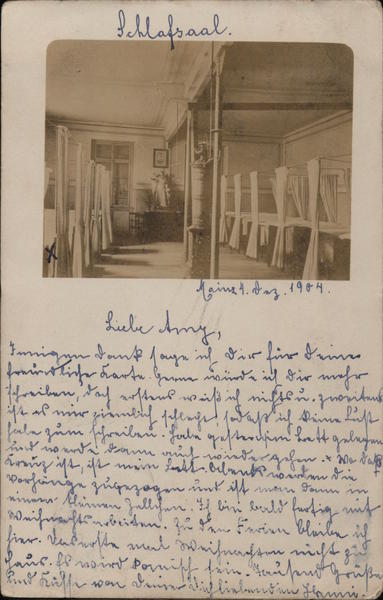 Schlafsaal.
Mainz 4. Dez. 1904.
Liebe Amy,
Innigen Dank sage ich Dir für Deine
freundliche Karte. Gerne würde ich Dir mehr
schreiben, doch erstens weiß ich nichts u. zweitens
ist es mir ziemlich schlecht, sodaß ich keine Lust
habe zum schreiben. Habe gestern im Bett gelegen
und werde dann auch wieder gehen. x Wo das
Kreuz ist, ist mein Bett. Abends werden die
Vorhänge zugezogen und ist man dann in
einem kleinen Zellchen. Ich bin bald fertig mit
Weihnachtsarbeiten. Zu den Ferien bleibe ich
hier. Das erste mal Weihnachten nicht zu
Haus. Es wird komisch sein. Tausend Grüße
und Küsse von Deiner Dich liebenden